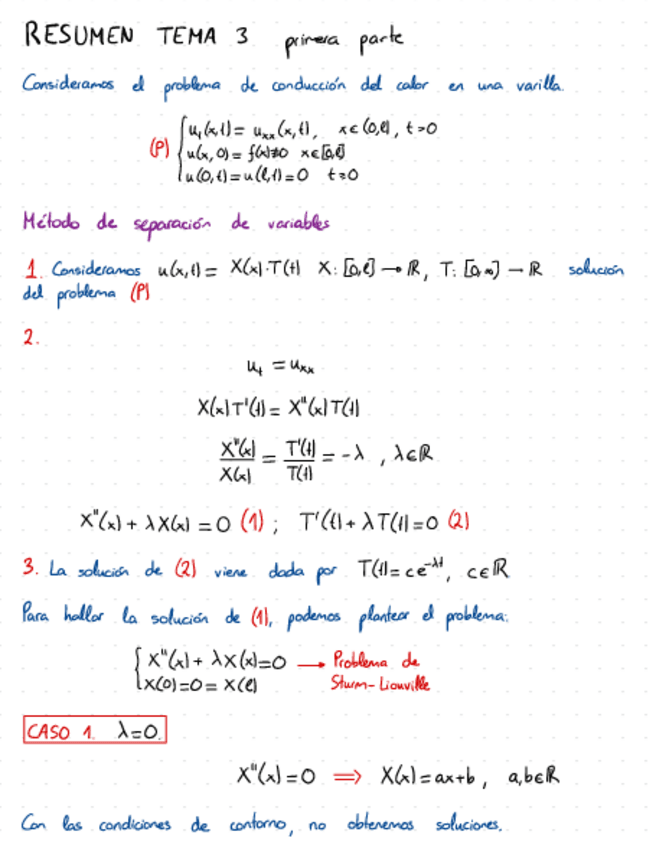 RESUMEN TEMA 3 primera parte
Consideramos el problema de conducción del calor en una varilla.
(P) { u_t(x,t) = u_xx(x,t), x∈(0,ℓ), t>0
u(x,0) = f(x)≠0 x∈[0,ℓ]
u(0,t) = u(ℓ,t) = 0 t≥0
Método de separación de variables
1. Consideramos u(x,t) = X(x)·T(t) X: [0,ℓ] → ℝ, T: [0,∞) → ℝ solución
del problema (P)
2.
u_t = u_xx
X(x)T'(t) = X''(x)T(t)
X''(x)/X(x) = T'(t)/T(t) = -λ , λ∈ℝ
X''(x) + λX(x) = 0 (1) ; T'(t) + λT(t) = 0 (2)
3. La solución de (2) viene dada por T(t) = ce^{-λt}, c∈ℝ
Para hallar la solución de (1), podemos plantear el problema:
{ X''(x) + λX(x) = 0 → Problema de
X(0) = 0 = X(ℓ) Sturm-Liouville
CASO 1. λ=0.
X''(x) = 0 ⟹ X(x) = ax+b , a,b∈ℝ
Con las condiciones de contorno, no obtenemos soluciones.